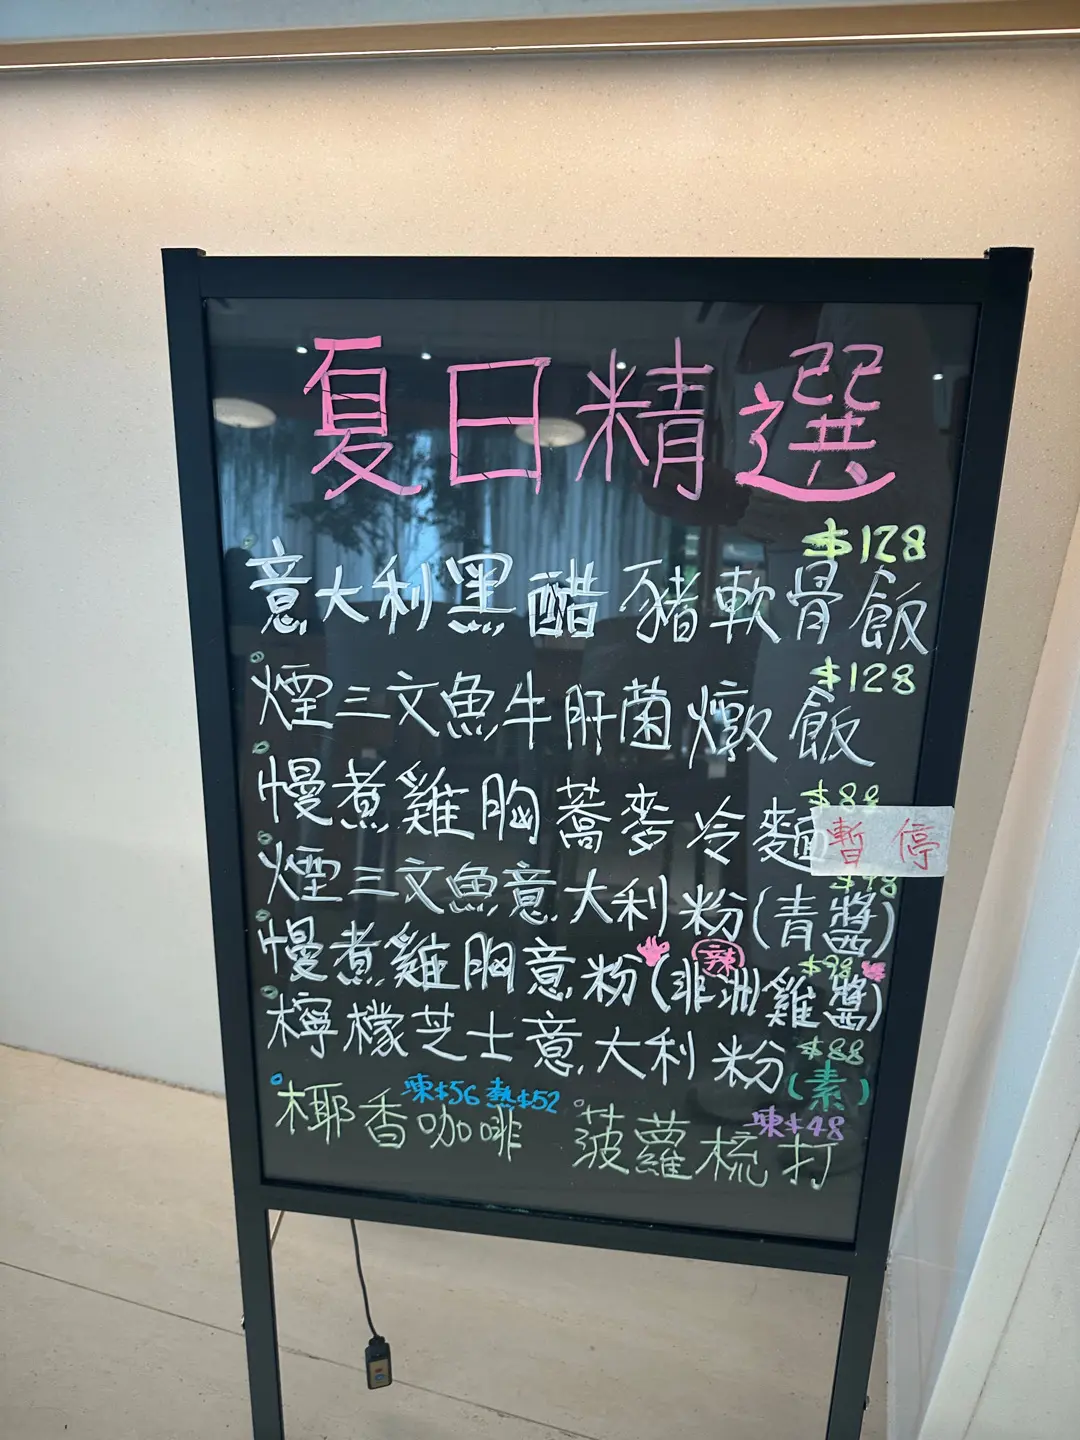 夏日精選
$128
意大利黑醋豬軟骨飯
$128
煙三文魚牛肝菌燉飯
$88
慢煮雞胸蕎麥冷麵 暫停
$98
煙三文魚意大利粉(青醬)
辣 $98
慢煮雞胸意粉(非洲雞醬)
$88
檸檬芝士意大利粉(素)
凍$56 熱$52 凍$48
椰香咖啡 菠蘿梳打